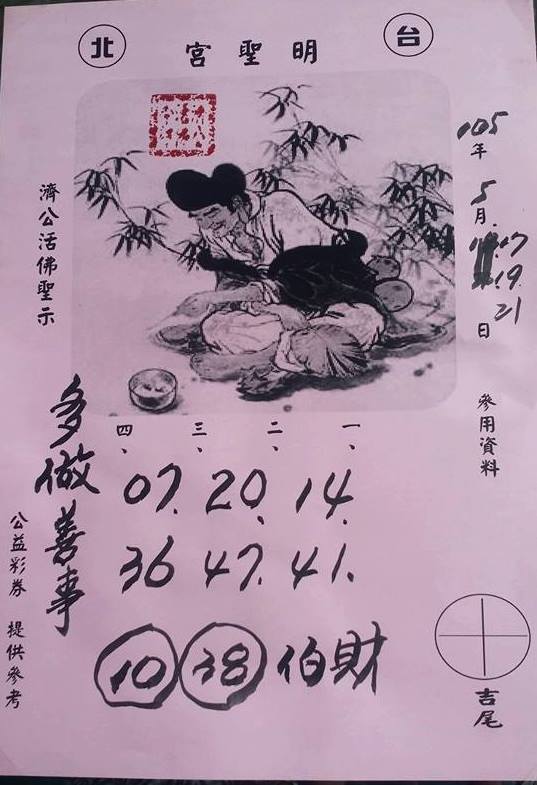 台北
明聖宮
105年5月17.19.21日
參用資料
濟公活佛聖示
一、二、三、四、
14. 20. 07.
41. 47. 36
財伯 38 10
多做善事
公益彩券 提供參考
吉尾